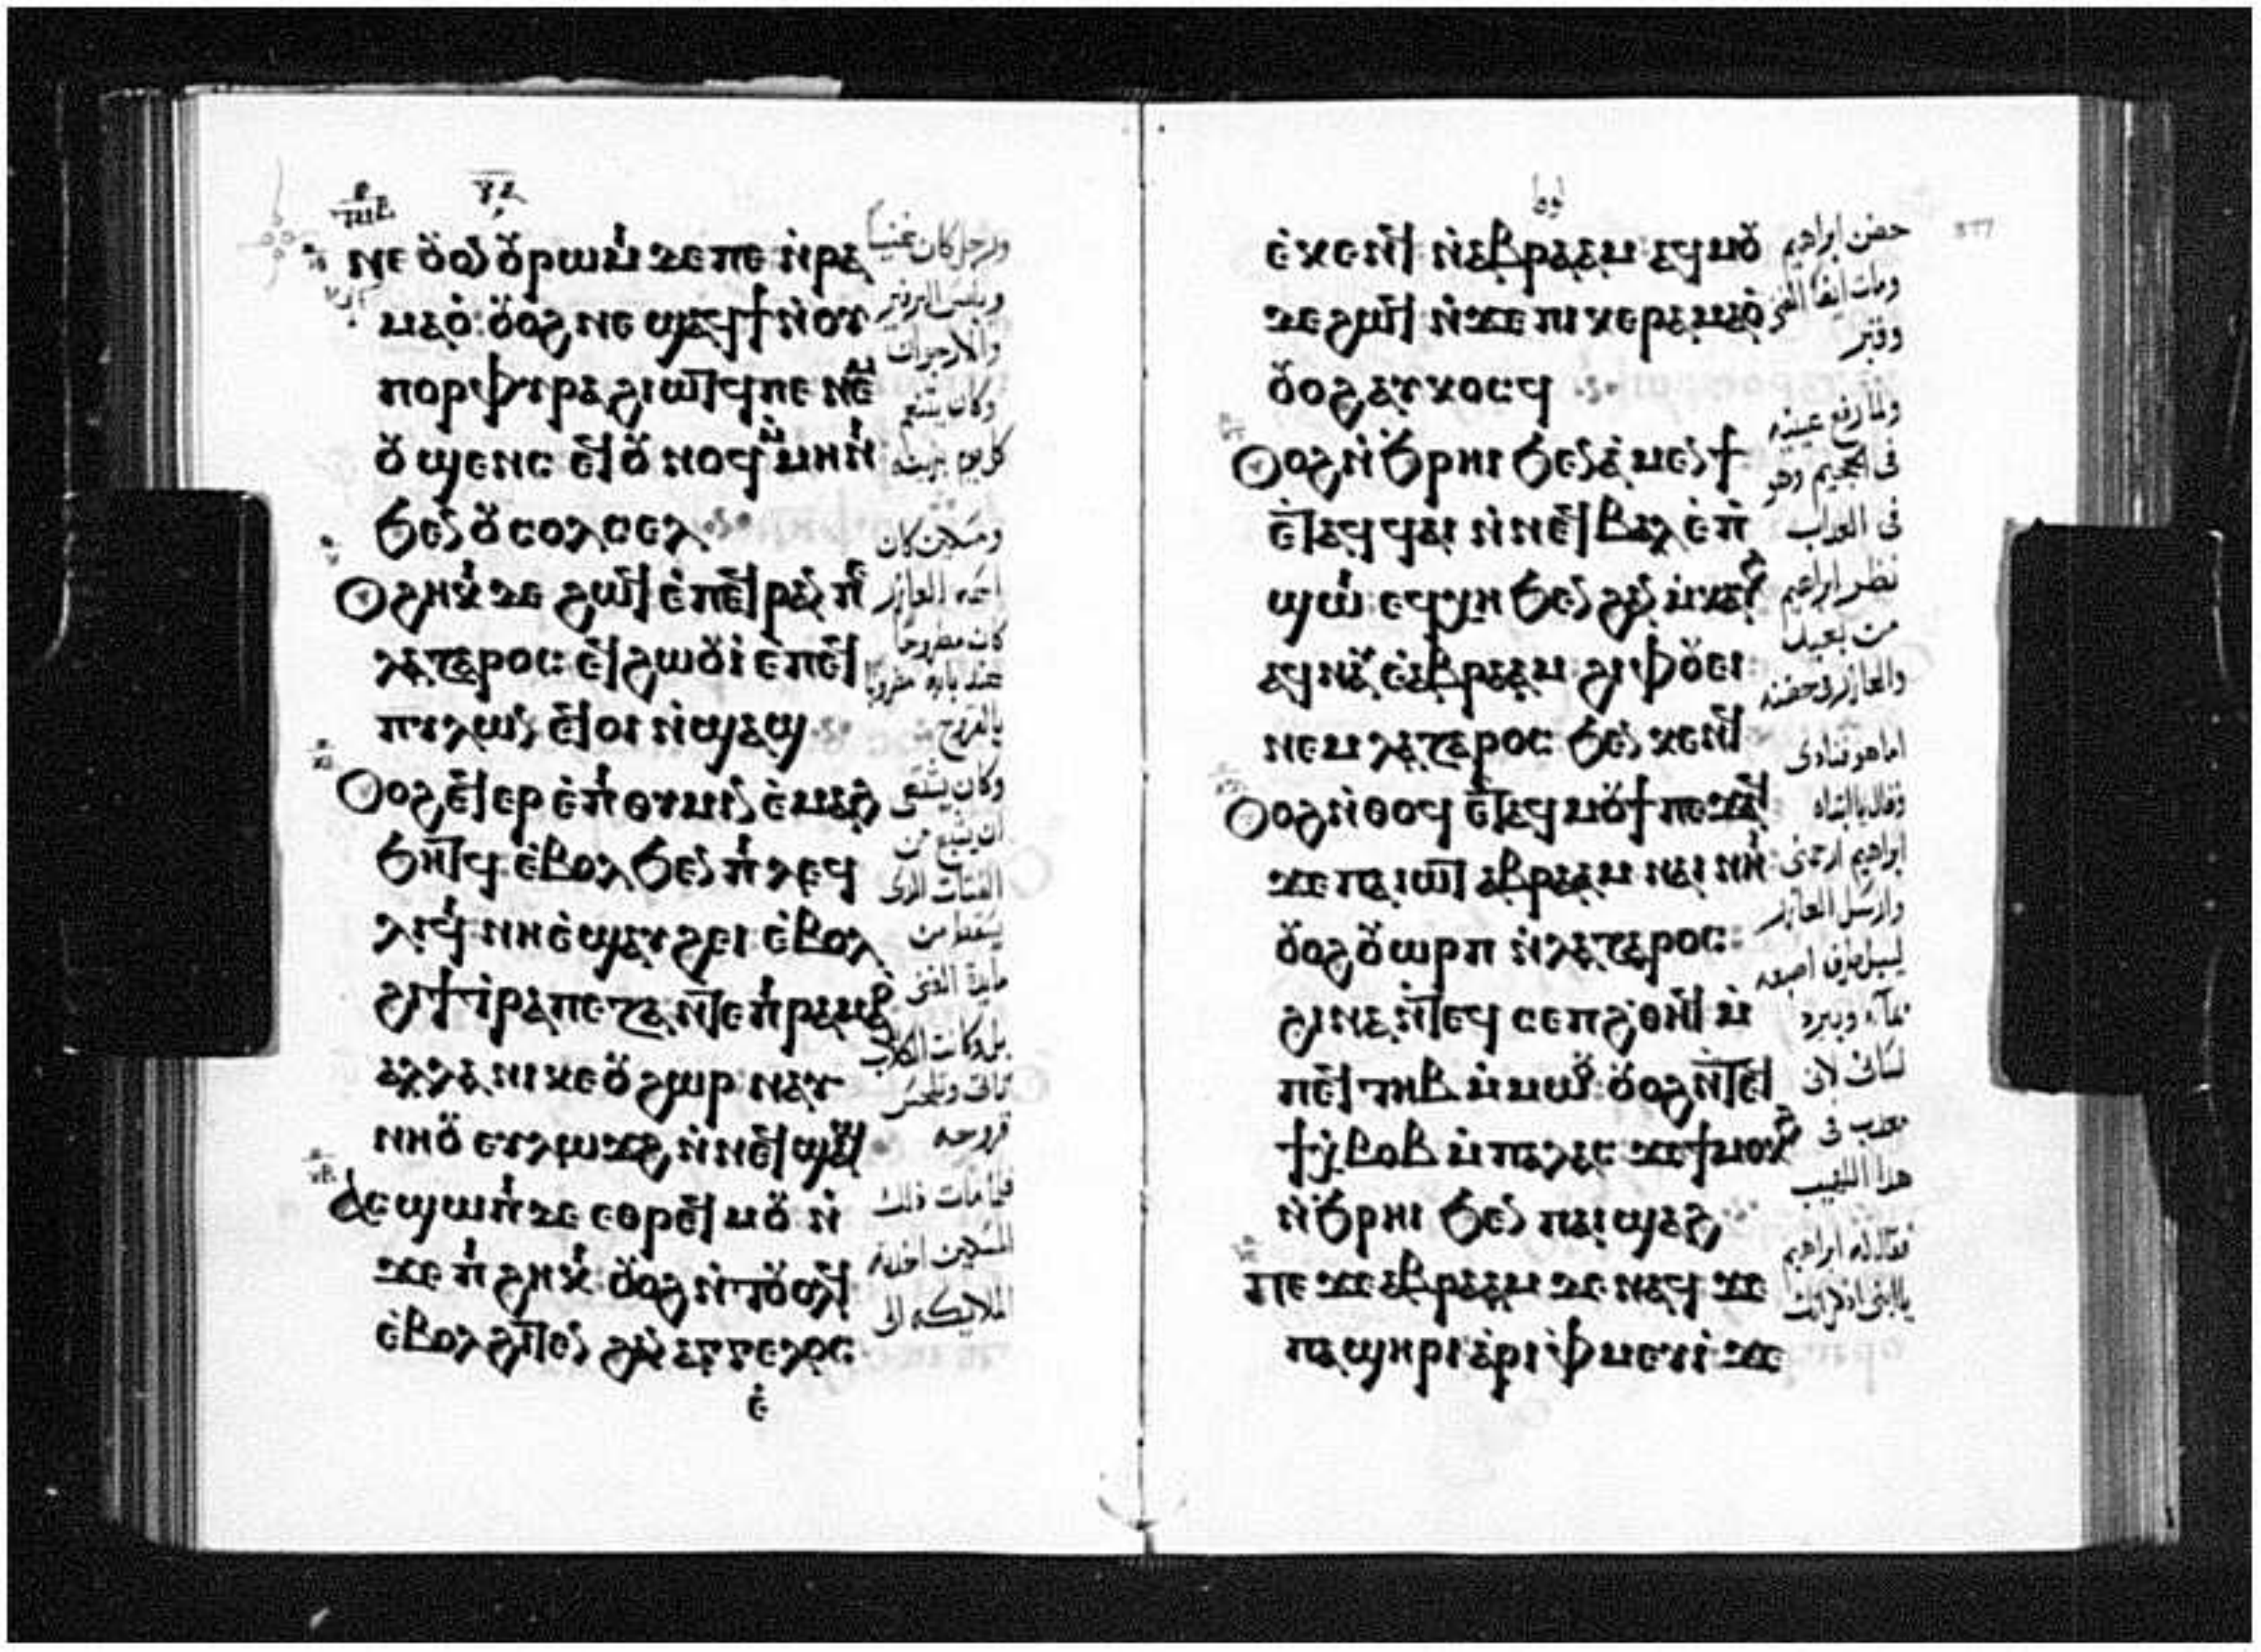 ⲛⲉ ⲟⲩⲟⲛ ⲟⲩⲣⲱⲙⲓ ⲇⲉ ⲡⲉ ⲛ̀ⲣⲁ
ⲙⲁⲟ̀: ⲟⲩⲟϩ ⲛⲉ ϣⲁϥϯ ⲛ̀ⲟⲩ
ⲡⲟⲣⲫⲩⲣⲁ ϩⲓⲱⲧϥ ⲡⲉ ⲛⲉⲙ
ⲟⲩ ϣⲉⲛⲥ ⲉϥⲟⲩⲛⲟϥ ⲙⲙⲏⲛⲓ
ϧⲉⲛ ⲟⲩⲥⲟⲗⲥⲉⲗ
Ⲟⲩϩⲏⲕⲓ ⲇⲉ ϩⲱϥ ⲉ̀ⲡⲉϥⲣⲁⲛ ⲡⲉ
ⲗⲁⲍⲁⲣⲟⲥ: ⲉϥϩⲱⲟⲩⲓ̀ ⲉ̀ⲡⲉϥ
ⲡⲩⲗⲱⲛ ⲉϥⲟⲓ ⲛ̀ϣⲁϣ
Ⲟⲩⲟϩ ⲉϥⲉⲣ ⲉ̀ⲡⲓⲑⲩⲙⲓⲛ ⲉ̀ⲙⲁϩ
ϧⲏⲧϥ ⲉ̀ⲃⲟⲗ ϧⲉⲛ ⲡⲓ ⲗⲉϥ
ⲗⲓϥⲓ ⲛⲏ ⲉ̀ϣⲁⲩ ϩⲉⲓ ⲉ̀ⲃⲟⲗ
ϩⲓ ϯⲧⲣⲁⲡⲉⲍⲁ ⲛⲧⲉ ⲡⲓ ⲣⲁⲙⲁⲟ
ⲁⲗⲗⲁ ⲛⲓ ⲕⲉ ⲟⲩϩⲱⲣ ⲛⲁⲩ
ⲛⲏⲟⲩ ⲉⲩⲗⲱϫϩ ⲛ̀ⲛⲉϥϣⲁϣ
Ⲁⲥϣⲱⲡⲓ ⲇⲉ ⲉⲑⲣⲉϥⲙⲟⲩ ⲛ̀
ϫⲉ ⲡⲓ ϩⲏⲕⲓ: ⲟⲩⲟϩ ⲛ̀ⲧⲟⲩⲟⲗϥ
ⲉ̀ⲃⲟⲗ ϩⲓⲧⲉⲛ ϩⲁⲛ ⲁⲅⲅⲉⲗⲟⲥ
ⲉ̀
ورجل كان غنيا
ويلبس البرفير
والارجوان
وكان يتنعم
كل يوم بزينة
ومسكين كان
اسمه العازر
كان مطروحا
عند بابه مضروبا
بالقروح
وكان يشتهى
ان يشبع من
الفتات الذى
يسقط من
مايدة الغنى
بل وكانت الكلاب
تاتى وتلحس
قروحه
فلما مات ذلك
المسكين اخذته
الملايكه الى
ⲉ̀ⲕⲉⲛϥ ⲛ̀ⲁⲃⲣⲁⲁⲙ ⲁϥⲙⲟⲩ
ⲇⲉ ϩⲱϥ ⲛ̀ϫⲉ ⲡⲓ ⲕⲉ ⲣⲁⲙⲁⲟ̀
ⲟⲩⲟϩ ⲁⲩⲕⲟⲥϥ
Ⲟⲩⲟϩ ⲛ̀ϧⲣⲏⲓ ϧⲉⲛ ⲁⲙⲉⲛϯ
ⲉ̀ⲧⲁϥ ϥⲁⲓ ⲛ̀ⲛⲉϥⲃⲁⲗ ⲉ̀ⲡ̀
ϣⲱⲓ: ⲉϥⲭⲏ ϧⲉⲛ ϩⲁⲛ ⲙ̀ⲕⲁⲩϩ
ⲁϥⲛⲁⲩ ⲉ̀ⲁⲃⲣⲁⲁⲙ ϩⲓ ⲫⲟⲩⲉⲓ
ⲛⲉⲙ ⲗⲁⲍⲁⲣⲟⲥ ϧⲉⲛ ⲕⲉⲛϥ
Ⲟⲩⲟϩ ⲛ̀ⲑⲟϥ ⲉ̀ⲧⲁϥⲙⲟⲩϯ ⲡⲉϫⲁϥ
ϫⲉ ⲡⲁⲓⲱⲧ ⲁⲃⲣⲁⲁⲙ ⲛⲁⲓ ⲛⲏⲓ
ⲟⲩⲟϩ ⲟⲩⲱⲣⲡ ⲛ̀ⲗⲁⲍⲁⲣⲟⲥ:
ϩⲓⲛⲁ ⲛ̀ⲧⲉϥ ⲥⲉⲡ ϩ̀ⲑⲏϥ ⲙ̀
ⲡⲉϥⲧⲏⲃ ⲙ̀ⲙⲱⲟⲩ: ⲟⲩⲟϩ ⲛ̀ⲧⲉϥ
ϯⲭ̀ⲃⲟⲃ ⲙ̀ⲡⲁⲗⲁⲥ ϫⲉ ϯⲙⲟⲕϩ
ⲛ̀ϧⲣⲏⲓ ϧⲉⲛ ⲡⲁⲓ ϣⲁϩ
Ⲡⲉ ϫⲉ ⲁⲃⲣⲁⲁⲙ ⲇⲉ ⲛⲁϥ ϫⲉ
ⲡⲁϣⲏⲣⲓ ⲁ̀ⲣⲓ ⲫⲙⲉⲩⲓ̀ ϫⲉ
حضن ابراهيم
ومات ايضا الغنى
وقبر
ولما رفع عينيه
فى الجحيم وهو
فى العذاب
نظر ابراهيم
من بعيد
والعازر فى حضنه
اما هو فنادى
وقال يا ابتاه
ابراهيم ارحمنى
وارسل العازر
ليبل طرف اصبعه
بماء ويبرد
لسانى لانى
معذب فى
هذا اللهيب
فقال له ابراهيم
377